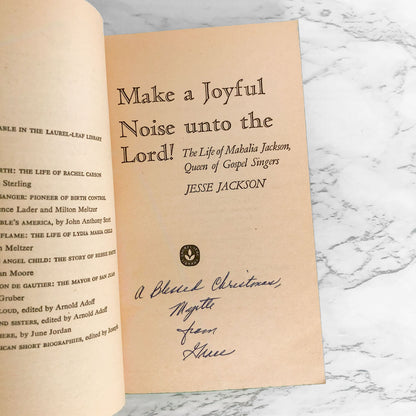 ABLE IN THE LAUREL-LEAF LIBRARY
RTH: THE LIFE OF RACHEL CARSON
Sterling
SANGER: PIONEER OF BIRTH CONTROL
ence Lader and Milton Meltzer
BLE'S AMERICA, by John Anthony Scott
FLAME: THE LIFE OF LYDIA MARIA CHILD
n Meltzer
ANGEL CHILD: THE STORY OF BESSIE SMITH
an Moore
ON DE GAUTIER: THE MAYOR OF SAN JUAN
Gruber
LOUD, edited by Arnold Adoff
ND SISTERS, edited by Arnold Adoff
HERE, by June Jordan
ICAN SHORT BIOGRAPHIES, edited by
Make a Joyful
Noise unto the
Lord! The Life of Mahalia Jackson,
Queen of Gospel Singers
JESSE JACKSON
A Blessed Christmas,
Myrtle
from